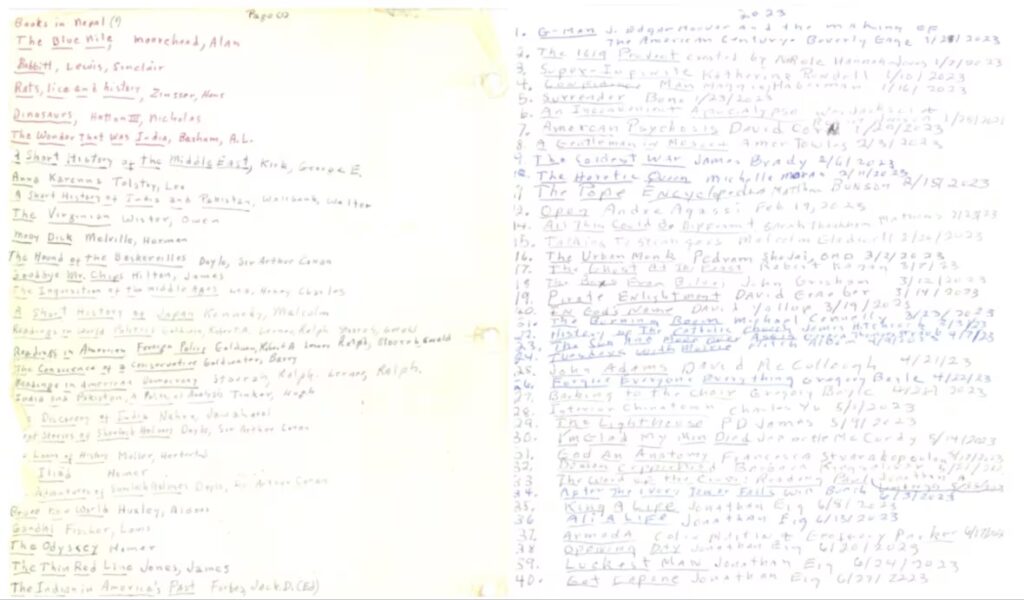 Page (1)
Books in Nepal (?)
The Blue Nile, Moorehead, Alan
Babbitt, Lewis, Sinclair
Rats, lice and history, Zinsser, Hans
Dinosaurs, Hatton III, Nicholas
The Wonder that was India, Basham, A.L.
A Short History of the Middle East, Kirk, George E.
Anna Karenna Tolstoy, Leo
A Short History of India and Pakistan, Wallbank, Walter
The Virginian Wister, Owen
Moby Dick Melville, Herman
The Hound of the Baskervilles Doyle, Sir Arthur Conan
Goodbye Mr. Chips Hilton, James
The Inquisition of the Middle Ages Lea, Henry Charles
A Short History of Japan Kennedy, Malcolm
Readings in World Politics Goldwin, Robert A. Lerner, Ralph
Readings in American Foreign Policy Goldwin, Robert A Lerner Ralph,
The Conscience of a Conservative Goldwater, Barry
Readings in American Democracy Ralph. Lerner, Ralph.
India and Pakistan, A Political Analysis Tinker, Hugh
Discovery of India Nehru, Jawaharal
Stories of Sherlock Holmes Doyle, Sir Arthur Conan
of History Muller, Herbert
Iliad Homer
Adventures of Sherlock Holmes Doyle, Sir Arthur Conan
Brave New World Huxley, Aldous
Gandhi Fischer, Louis
The Odyssey Homer
The Thin Red Line Jones, James
The Indian in America's Past Forbes, Jack D. (Ed)
2023
1. G-Man J. Edgar Hoover and the making of
The American Century Beverly Gage 2023
2. The 1619 Project created by Nikole Hannah Jones 1/7/2023
3. Super-Infinite Katherine Rundell 1/10/2023
4. Confidence Man Maggie Haberman 1/16/2023
5. Surrender Bono 1/23/2023
6. An Inconvenient Apocalypse
7. American Psychosis David Corn 1/29/2023
8. A Gentleman in Moscow Amor Towles 2/3/2023
9. The Coldest War James Brady 2/6/2023
10. The Heretic Queen Michelle Moran 2/11/2023
The Pope Encyclopedia Matthew Bunson 2/15/2023
Open Andre Agassi Feb 19, 2023
14. All This Could Be Different Sarah Thankam Mathews
15. Talking to Strangers Malcolm Gladwell 2023
16. The Urban Monk Pedram Shojai, OMD 3/2/2023
17. The Ghost At The Feast Robert Kagan 2023
18 The Boys From Biloxi John Grisham 3/12/2023
19. Pirate Enlightenment David Graeber 3/14/2023
20. In God's Name David Yallop 3/19/2023
21. The Burning Room Michael Connelly 3/23/2023
22. History of The Catholic Church James Hitchcock
23. The Sun And
24. Tuesdays With Morrie
25. John Adams David McCullough 4/21/23
26. Forgive Everyone Everything Gregory Boyle 4/22/23
27. Barking to the Choir Gregory Boyle 2023
28. Interior Chinatown Charles Yu 5/1/2023
29. The Lighthouse PD James 2023
30. I'm Glad My Mom Died Jennette McCurdy 5/14/2023
31. God An Anatomy Francesca Stavrakopoulou
32. Demon Copperhead Barbara Kingsolver
33 The Word on the Cross: Reading Paul Jonathan A.
34. After The Ivory Tower Falls Will Bunch 6/3/2023
35. King A Life Jonathan Eig 6/8/2023
36 Ali A Life Jonathan Eig 6/13/2023
37. Armada Colin Martin & Geoffrey Parker 6/17/2023
38 Opening Day Jonathan Eig 6/20/2023
39. Luckest Man Jonathan Eig 6/24/2023
40. Get Capone Jonathan Eig 6/27/2023